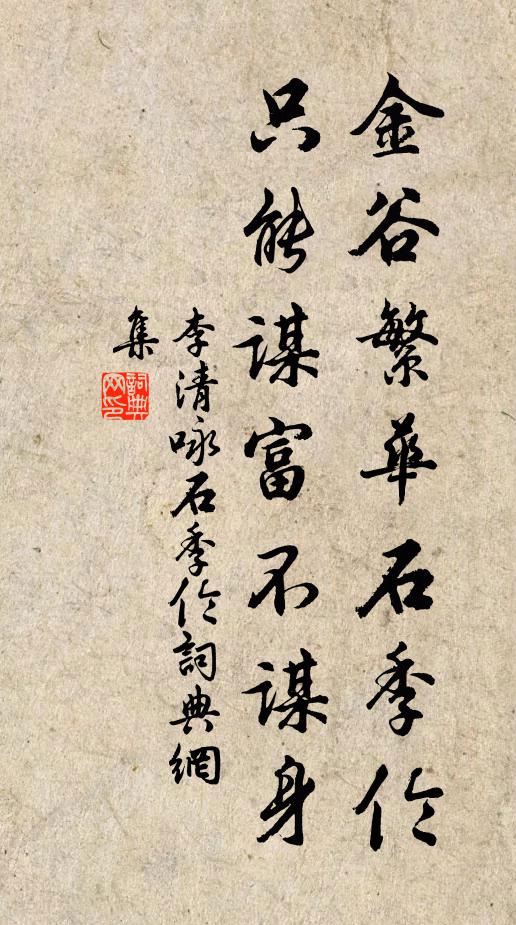 金谷繁華石季倫
只能謀富不謀身
李清咏石季倫詞典網
集
詞典
网印